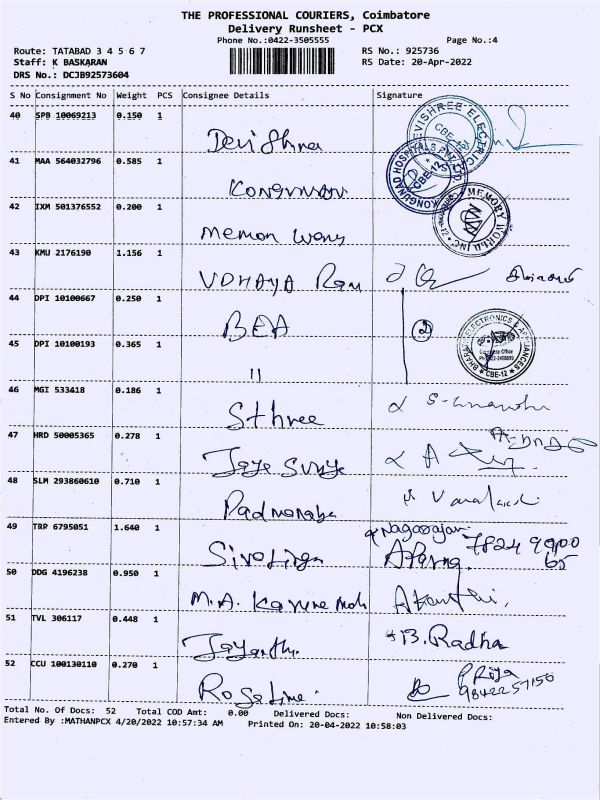 THE PROFESSIONAL COURIERS, Coimbatore
Delivery Runsheet - PCX
Phone No.:0422-3505555 Page No.:4
Route: TATABAD 3 4 5 6 7 RS No.: 925736
Staff: K BASKARAN RS Date: 20-Apr-2022
DRS No.: DCJB92573604
S No Consignment No Weight PCS Consignee Details Signature
40 SPB 10069213 0.150 1
DEVISHREE ELECTRIC
CBE-12
Devi Shree
41 MAA 564032796 0.585 1
KONGUNAD HOSPITALS PVT LTD
CBE-12
42 IXM 501376552 0.200 1
MEMORY WORLD INC
43 KMU 2176190 1.156 1
UDHAYA Ram
44 DPI 10100667 0.250 1
BEA 2
BHARATH ELECTRONICS & APPLIANCES
CBE-12
45 DPI 10100193 0.365 1
"
46 MGI 533418 0.186 1
Sthree
47 HRD 50005365 0.278 1
Jaya Surya
48 SLM 293860610 0.710 1
Padmanaba
49 TRP 6795051 1.640 1
Nagarajan
Sivalinga Aparna
50 DDG 4196238 0.950 1
M.A.
51 TVL 306117 0.448 1
Jayanthi B. Radha
52 CCU 100130110 0.270 1
Priya
Rosaline 9842257150
Total No. Of Docs: 52 Total COD Amt: 0.00 Delivered Docs: Non Delivered Docs:
Entered By :MATHANPCX 4/20/2022 10:57:34 AM Printed On: 20-04-2022 10:58:03